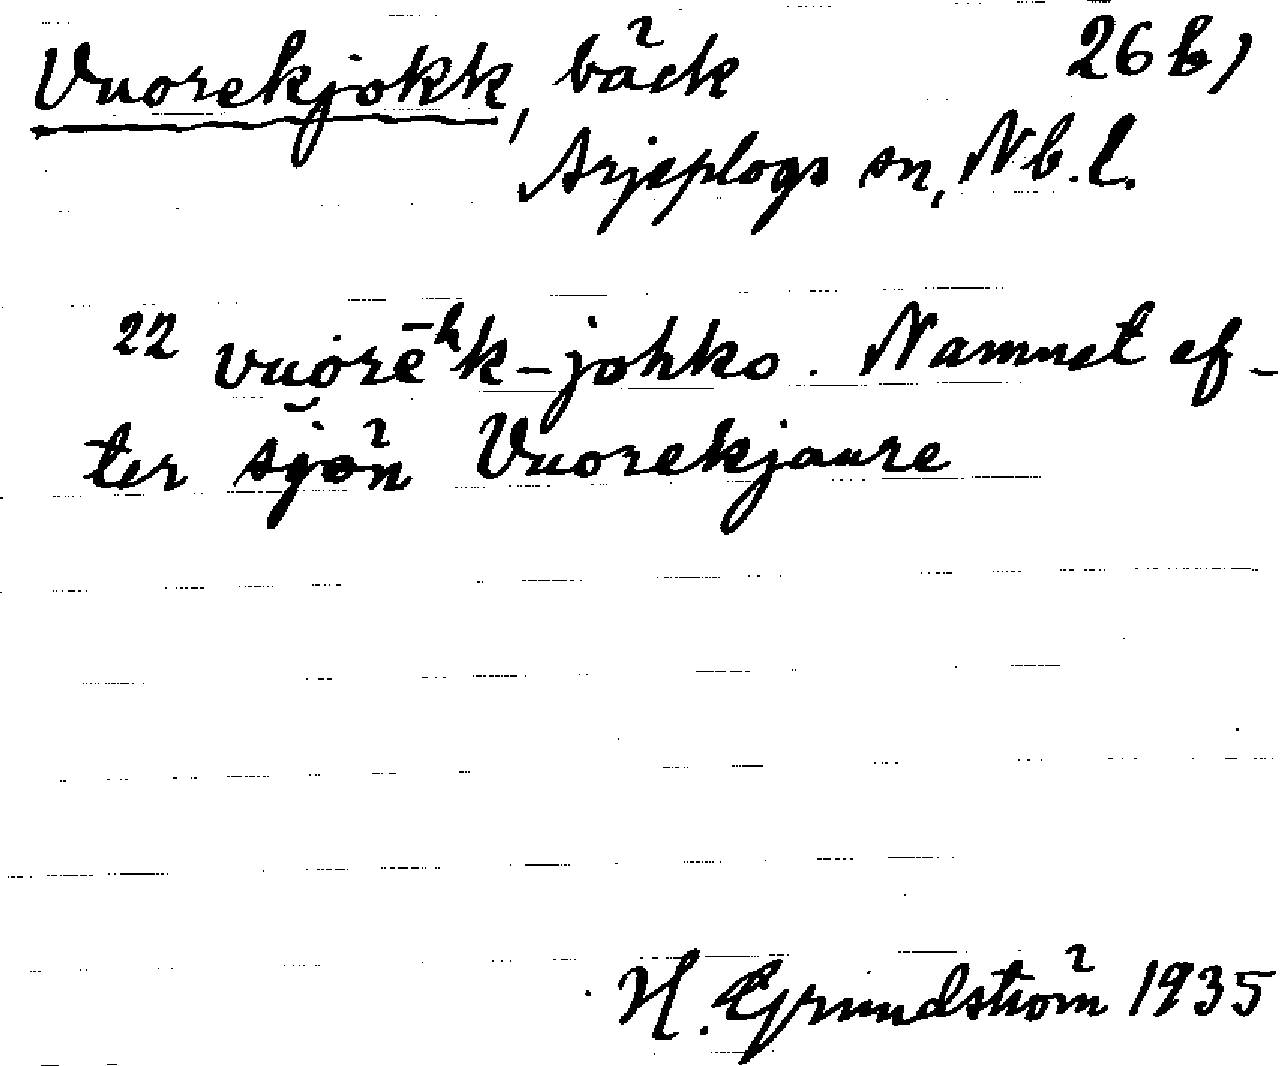 Vuorekjokk, bäck 26 b)
Arjeplogs sn, Nb. l.
22 vuo̯rēʰk-johko. Namnet ef-
ter sjön Vuorekjaure
H. Grundström 1935